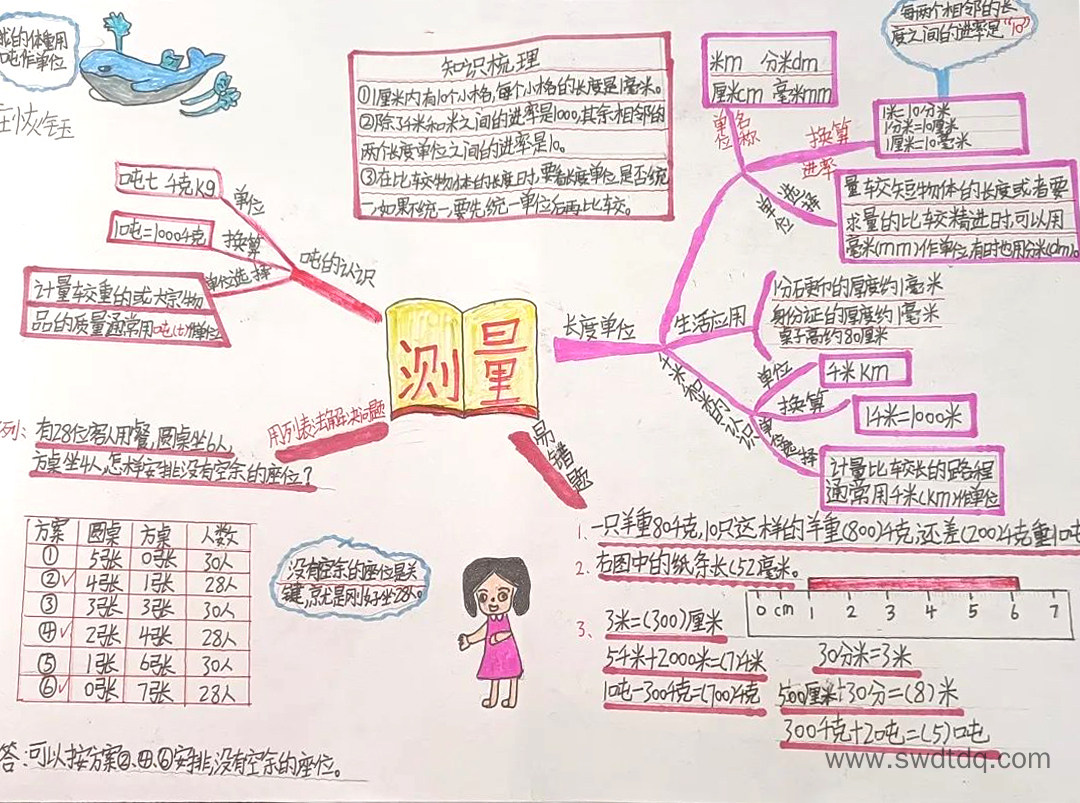 我的体重用
吨作单位
知识梳理
①1厘米内有10个小格,每个小格的长度是1毫米。
②除了千米和米之间的进率是1000,其余相邻的
两个长度单位之间的进率是10。
③在比较物体的长度时,要看长度单位是否统
一,如果不统一,要先统一单位后再比较。
米m 分米dm
厘米cm 毫米mm
每两个相邻的长
度之间的进率是"10"
单位名称
换算
进率
1米=10分米
1分米=10厘米
1厘米=10毫米
单位选择
量较短物体的长度或者要
求量的比较精进时,可以用
毫米(mm)作单位,有时也用分米(dm)。
吨t 千克kg
单位
1吨=1000千克
换算
单位选择
计量较重的或大宗物
品的质量通常用吨(t)作单位
吨的认识
测量
长度单位
生活应用
1分硬币的厚度约1毫米
身份证的厚度约1毫米
桌子高约80厘米
千米的认识
单位
千米km
换算
1千米=1000米
单位选择
计量比较长的路程
通常用千米(km)作单位
用列表法解决问题
易错题
列:有28位客人用餐,圆桌坐6人,
方桌坐4人,怎样安排没有空余的座位?
方案 圆桌 方桌 人数
① 5张 0张 30人
②✓ 4张 1张 28人
③ 3张 3张 30人
④✓ 2张 4张 28人
⑤ 1张 6张 30人
⑥✓ 0张 7张 28人
答:可以按方案②、④、⑥安排,没有空余的座位。
没有空余的座位是关
键,就是刚好坐28人。
1、一只羊重80千克,10只这样的羊重(800)千克,还差(200)千克重1吨
2、右图中的纸条长(52毫米。
0 cm 1 2 3 4 5 6 7
3、3米=(300)厘米
5千米+2000米=(7)千米
30分米=3米
1吨-300千克=(700)千克
500厘米+30分=(8)米
300千克+2吨=(5)吨
www.swdtdq.com